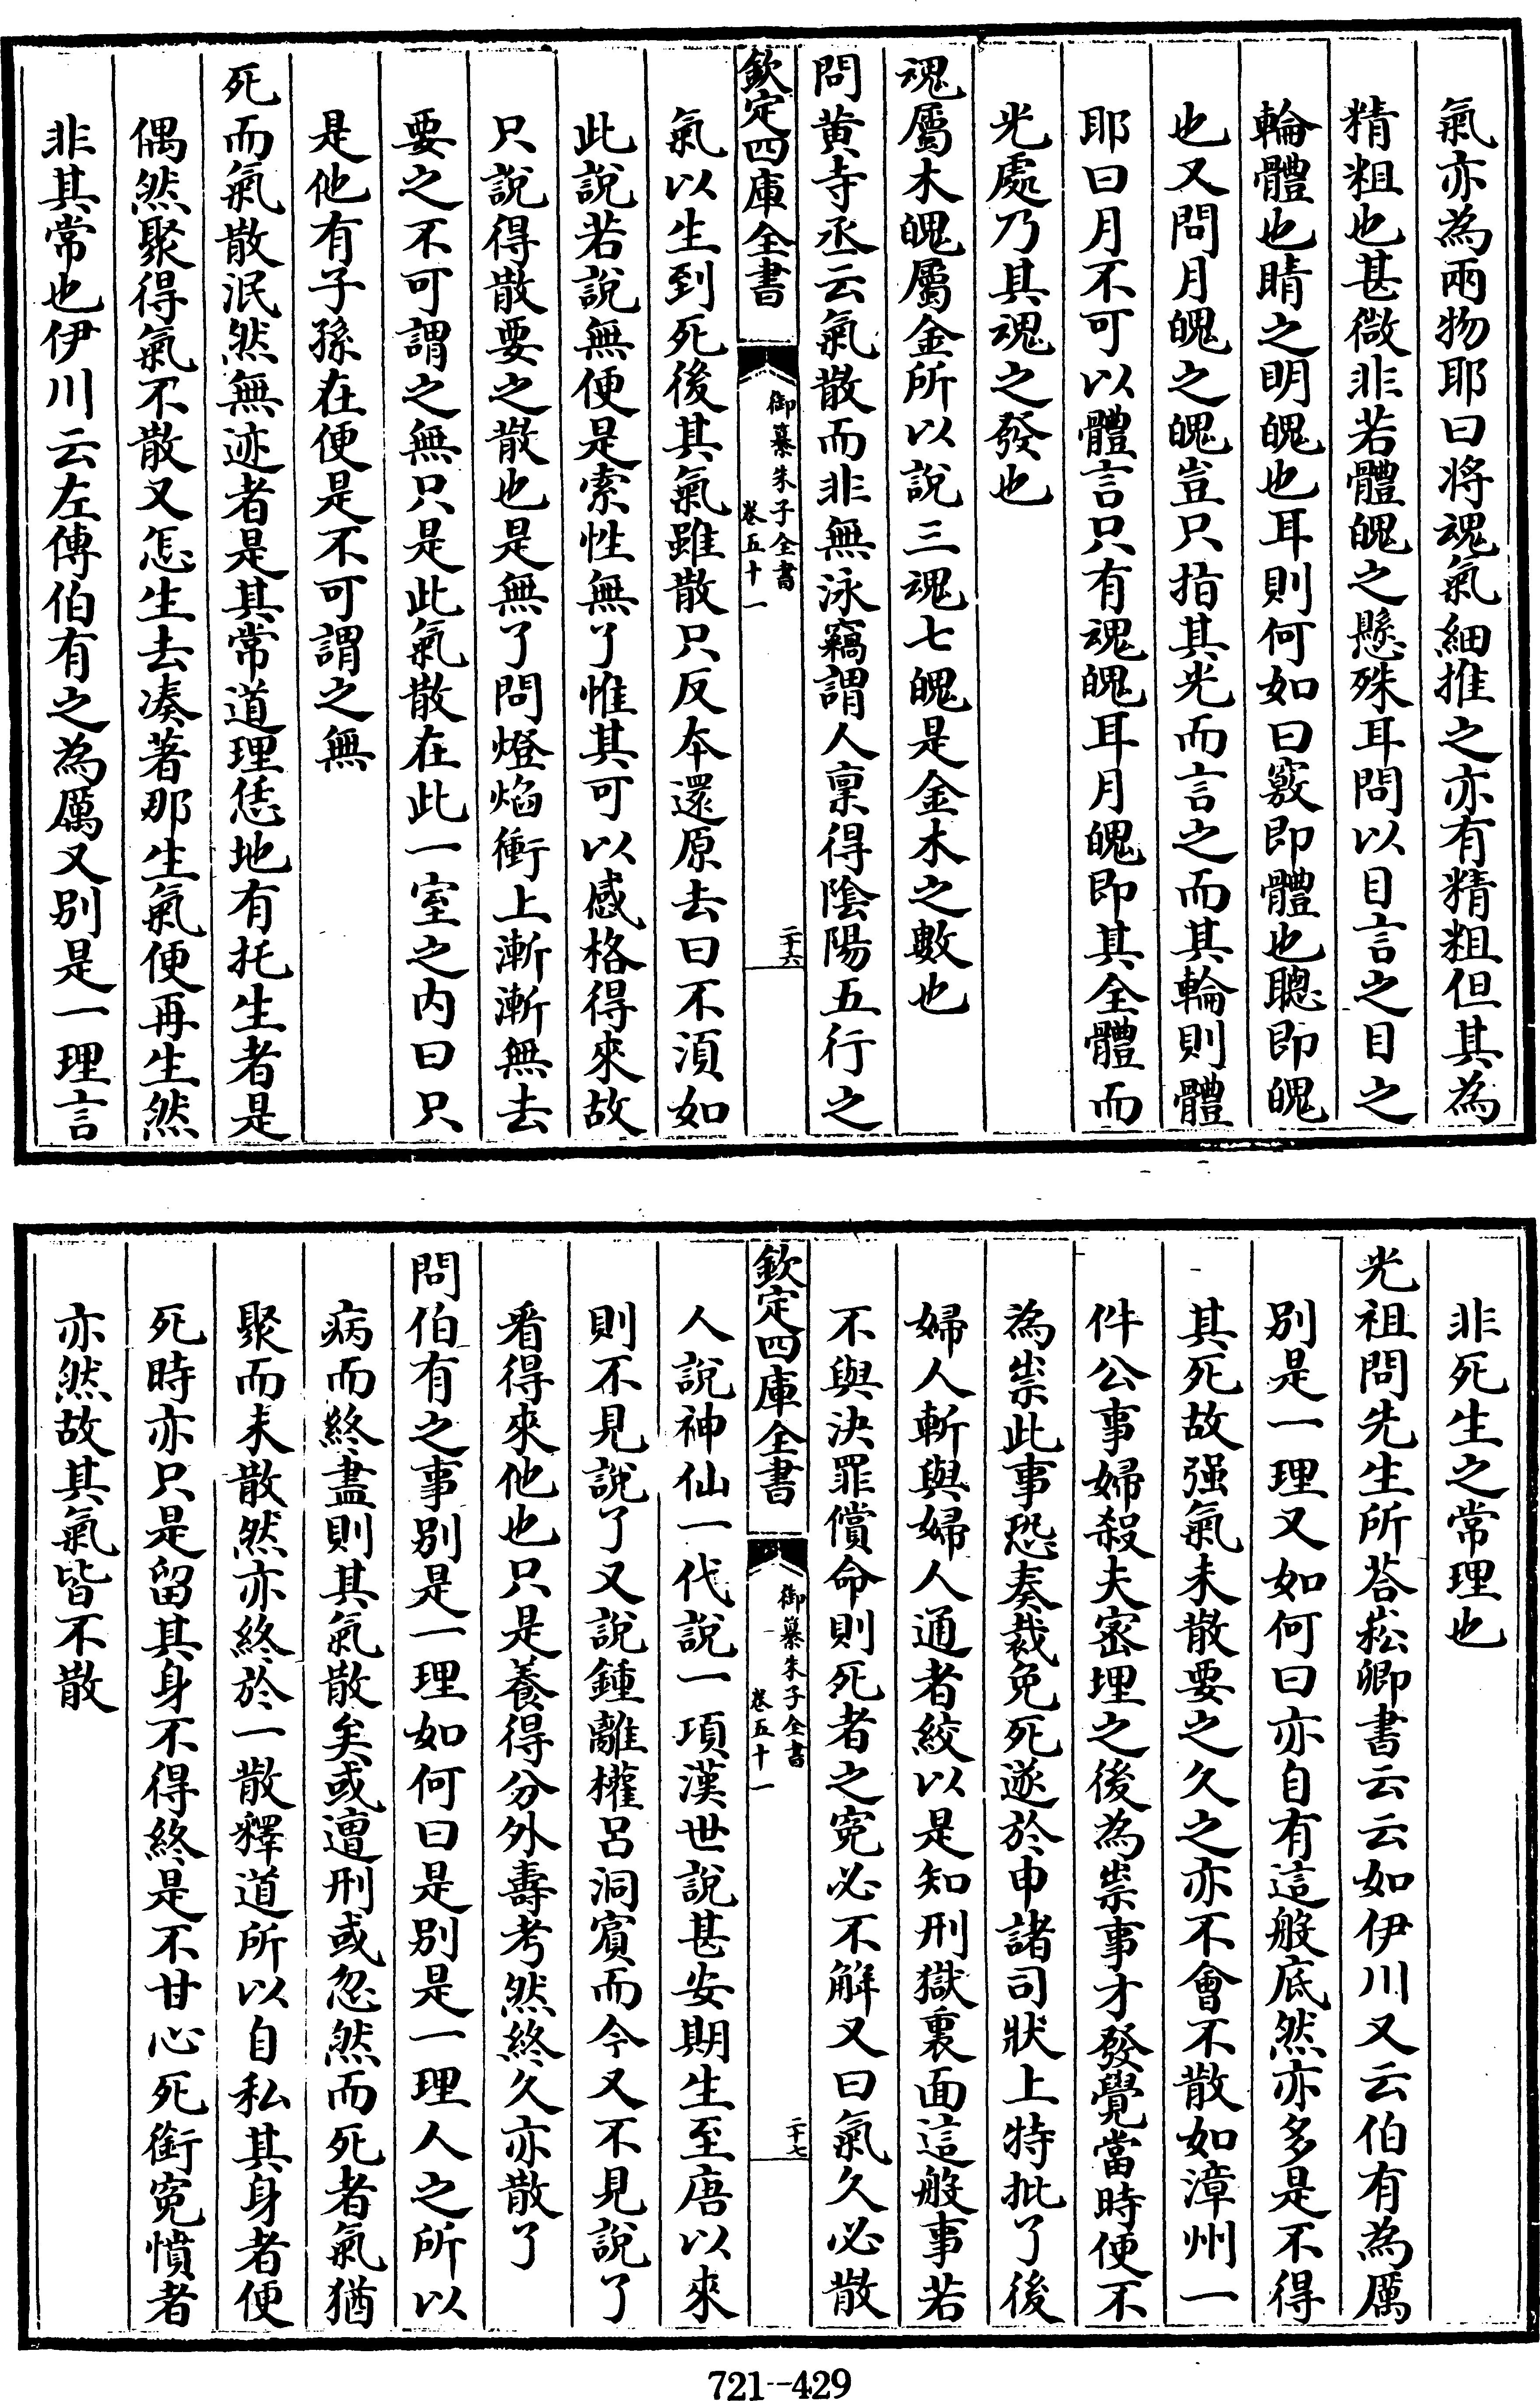 氣亦為兩物耶曰將魂氣細推之亦有精粗但其為
精粗也甚微非若體魄之懸殊耳問以目言之目之
輪體也睛之明魄也耳則何如曰竅即體也聰即魄
也又問月魄之魄豈只指其光而言之而其輪則體
耶曰月不可以體言只有魂魄耳月魄即其全體而
光處乃其魂之發也
魂屬木魄屬金所以說三魂七魄是金木之數也
問黃寺丞云氣散而非無泳竊謂人稟得陰陽五行之
欽定四庫全書
御纂朱子全書
卷五十一
二十六
氣以生到死後其氣雖散只反本還原去曰不須如
此說若說無便是索性無了惟其可以感格得來故
只說得散要之散也是無了問燈焰衝上漸漸無去
要之不可謂之無只是此氣散在此一室之內曰只
是他有子孫在便是不可謂之無
死而氣散泯然無迹者是其常道理恁地有托生者是
偶然聚得氣不散又怎生去湊著那生氣便再生然
非其常也伊川云左傳伯有之為厲又別是一理言
非死生之常理也
光祖問先生所荅崧卿書云云如伊川又云伯有為厲
別是一理又如何曰亦自有這般底然亦多是不得
其死故强氣未散要之久之亦不會不散如漳州一
件公事婦殺夫密埋之後為祟事才發覺當時便不
為祟此事恐奏裁免死遂於申諸司狀上特批了後
婦人斬與婦人通者絞以是知刑獄裏面這般事若
不與決罪償命則死者之寃必不解又曰氣久必散
欽定四庫全書
御纂朱子全書
卷五十一
二十七
人說神仙一代說一項漢世說甚安期生至唐以來
則不見說了又說鍾離權呂洞賓而今又不見說了
看得來他也只是養得分外壽考然終久亦散了
問伯有之事別是一理如何曰是別是一理人之所以
病而終盡則其氣散矣或遭刑或忽然而死者氣猶
聚而未散然亦終於一散釋道所以自私其身者便
死時亦只是留其身不得終是不甘心死銜寃憤者
亦然故其氣皆不散
721--429